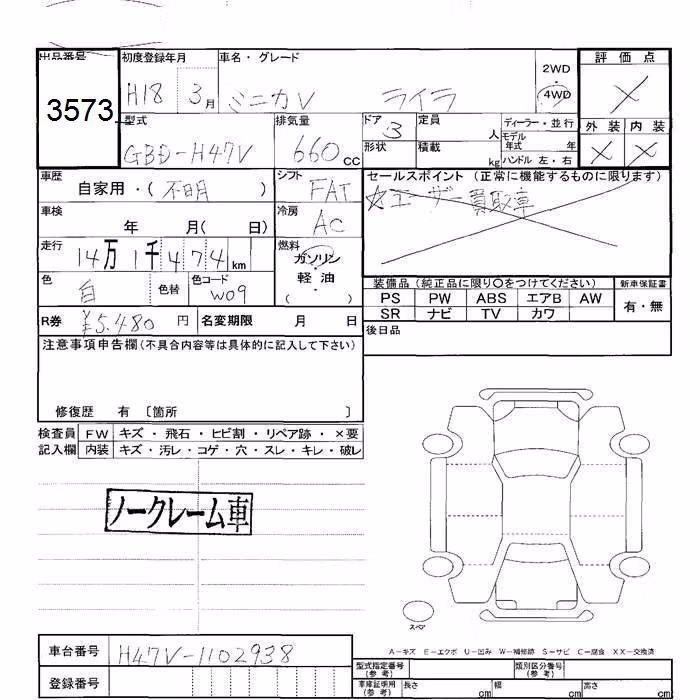 出品番号 3573
初度登録年月 H18 3月
車名・グレード ミニカV ライラ
2WD
4WD
評価点 ×
外装 × 内装 ×
型式 GBD-H47V
排気量 660cc
ドア 3
定員 人
ディーラー・並行
モデル年式 年
形状
積載 kg
ハンドル 左・右
車歴 自家用・(不明)
シフト FAT
車検 年 月(日)
冷房 AC
走行 14万1千474km
燃料 ガソリン 軽油 ( )
色 白
色替
色コード W09
R券 ¥5.480円
名変期限 月 日
セールスポイント (正常に機能するものに限ります)
ユーザー買取車
装備品 (純正品に限り○をつけてください)
新車保証書
PS PW ABS エアB AW
有・無
SR ナビ TV カワ
後日品
注意事項申告欄(不具合内容等は具体的に記入して下さい)
修復歴 有 〔箇所 〕
検査員記入欄
FW キズ・飛石・ヒビ割・リペア跡・×要
内装 キズ・汚レ・コゲ・穴・スレ・キレ・破レ
ノークレーム車
スペア
A-キズ E-エクボ U-凹み W-補修跡 S-サビ C-腐食 XX-交換済
車台番号 H47V-1102938
登録番号
型式指定番号(参考)
類別区分番号(参考)
車庫証明用(参考) 長さ cm 幅 cm 高さ cm